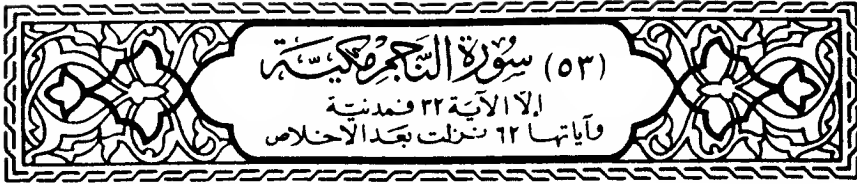 (٥٣) سُورَة النَّجْمِ مَكِيَّة
إلّا الآيَة ٣٢ فمدنيّة
وآياتها ٦٢ نزلت بعد الاخلاص